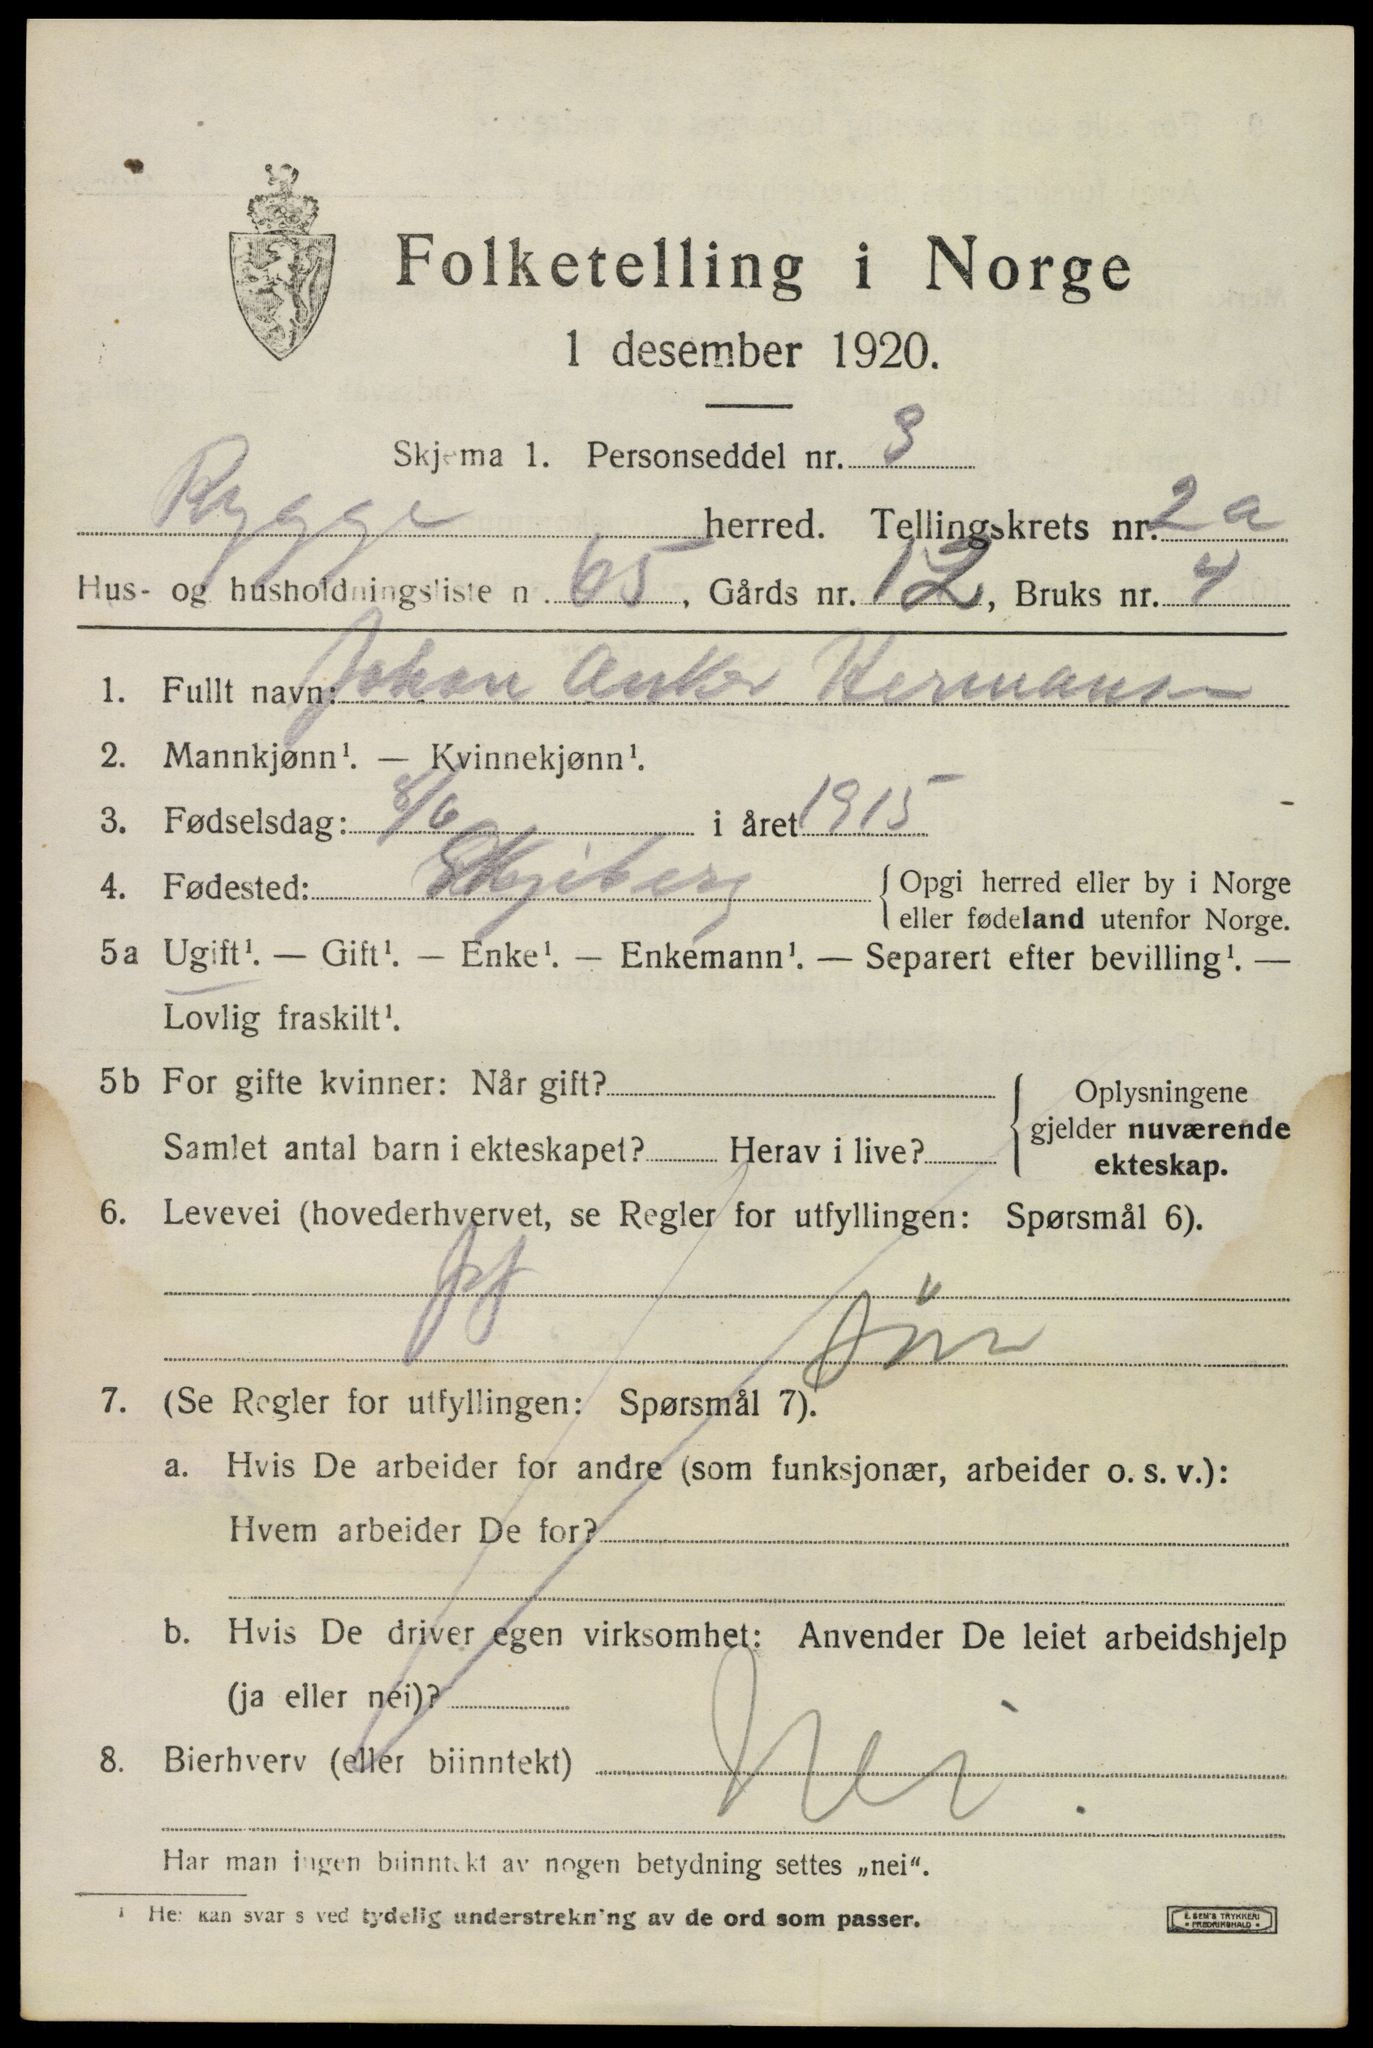 Folketelling i Norge
1 desember 1920.
Skjema 1. Personseddel nr. 3
Rygge herred. Tellingskrets nr. 2a
Hus- og husholdningsliste n . 65, Gårds nr. 12, Bruks nr. 4
1. Fullt navn: Johan Anker Hermansen
2. Mannkjønn¹. — Kvinnekjønn¹.
3. Fødselsdag: 8/6 i året 1915
4. Fødested: Skjeberg { Opgi herred eller by i Norge
eller fødeland utenfor Norge.
5a Ugift¹. — Gift¹. — Enke¹. — Enkemann¹. — Separert efter bevilling¹. —
Lovlig fraskilt¹.
5b For gifte kvinner: Når gift? { Oplysningene
gjelder nuværende
Samlet antal barn i ekteskapet? Herav i live?
ekteskap.
6. Levevei (hovederhvervet, se Regler for utfyllingen: Spørsmål 6).
Sön
7. (Se Regler for utfyllingen: Spørsmål 7).
a. Hvis De arbeider for andre (som funksjonær, arbeider o. s. v.):
Hvem arbeider De for?
b. Hvis De driver egen virksomhet: Anvender De leiet arbeidshjelp
(ja eller nei)?
8. Bierhverv (eller biinntekt) Nei.
Har man ingen biinntekt av nogen betydning settes „nei“.
¹ Her kan svar s ved tydelig understrekning av de ord som passer.
E. SEM'S TRYKKERI
• FREDRIKSHALD •